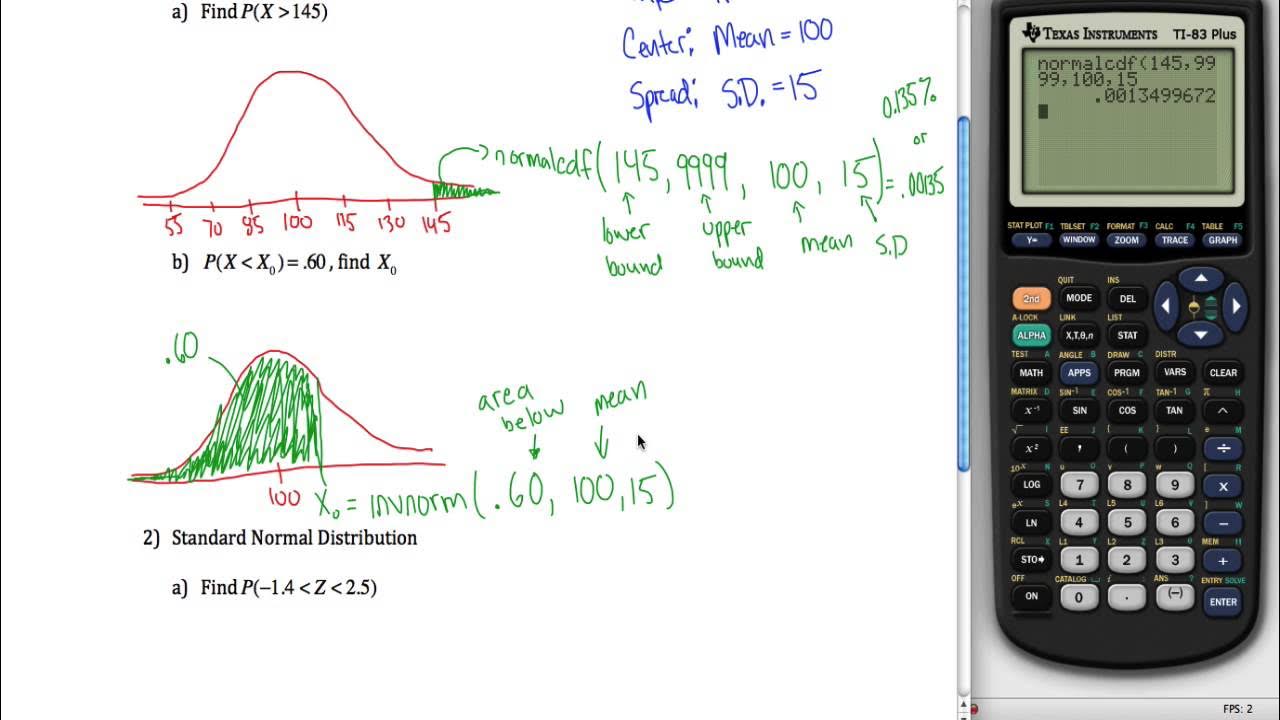 a) Find P(X > 145)
Center: Mean = 100
Spread: S.D. = 15
0.135%
or
normalcdf(145, 9999, 100, 15) = .00135
lower bound
upper bound
mean
S.D
55 70 85 100 115 130 145
b) P(X < X₀) = .60, find X₀
.60
area below
mean
100
X₀ = invnorm(.60, 100, 15)
2) Standard Normal Distribution
a) Find P(−1.4 < Z < 2.5)
TEXAS INSTRUMENTS TI-83 Plus
normalcdf(145,99
99,100,15
.0013499672
STAT PLOT F1 TBLSET F2 FORMAT F3 CALC F4 TABLE F5
Y= WINDOW ZOOM TRACE GRAPH
QUIT INS
2nd MODE DEL
A-LOCK LINK LIST
ALPHA X,T,θ,n STAT
TEST A ANGLE B DRAW C DISTR
MATH APPS PRGM VARS CLEAR
MATRIX D SIN⁻¹ E COS⁻¹ F TAN⁻¹ G π H
x⁻¹ SIN COS TAN ^
√ I EE J { K } L e M
x² , ( ) ÷
10ˣ N u O v P w Q [ R
LOG 7 8 9 x
eˣ S L4 T L5 U L6 V ] W
LN 4 5 6 −
RCL X L1 Y L2 Z L3 θ MEM "
STO➔ 1 2 3 +
OFF CATALOG i : ANS ? ENTRY SOLVE
ON 0 . (−) ENTER
FPS: 2